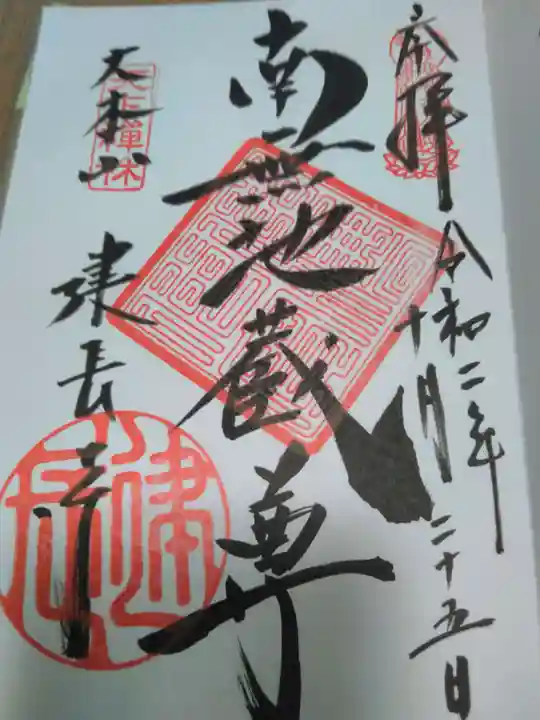 奉拝
令和二年
十月二十五日
南無地蔵尊
天下禅林
天本山
建長寺
建長